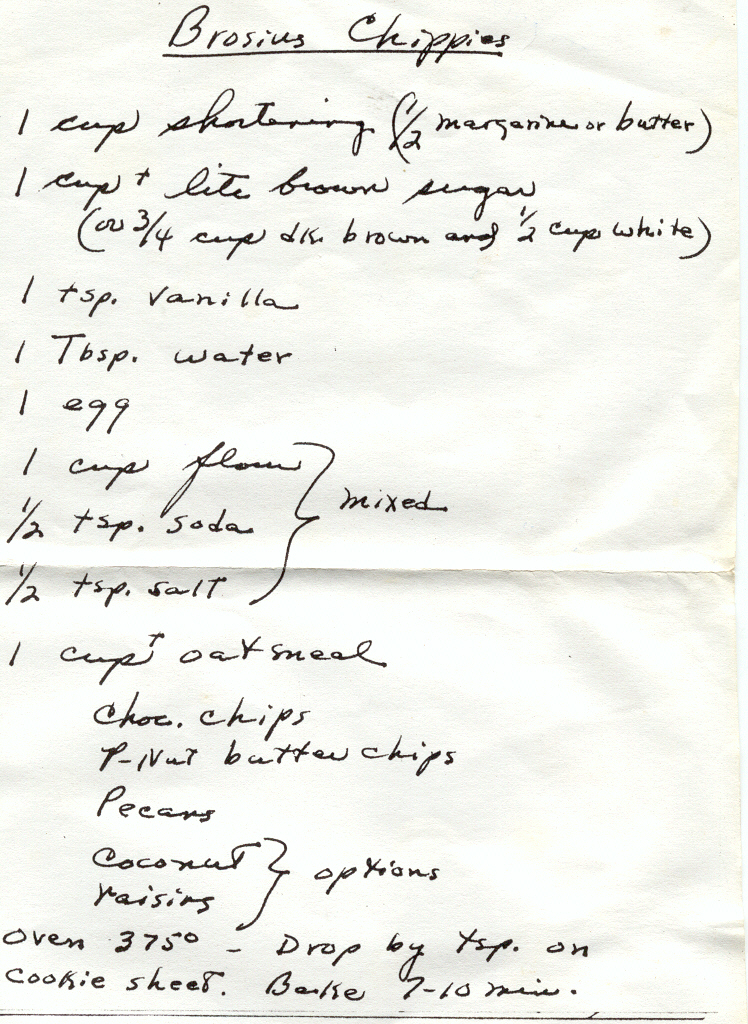 Brosius Chippies
1 cup shortening (1/2 margarine or butter)
1 cup + lite brown sugar
(or 3/4 cup dk. brown and 1/2 cup white)
1 tsp. vanilla
1 Tbsp. water
1 egg
1 cup flour
1/2 tsp. soda
mixed
1/2 tsp. salt
1 cup + oatmeal
Choc. chips
P-Nut butter chips
Pecans
Coconut
options
raisins
Oven 375° - Drop by tsp. on
cookie sheet. Bake 7-10 min.